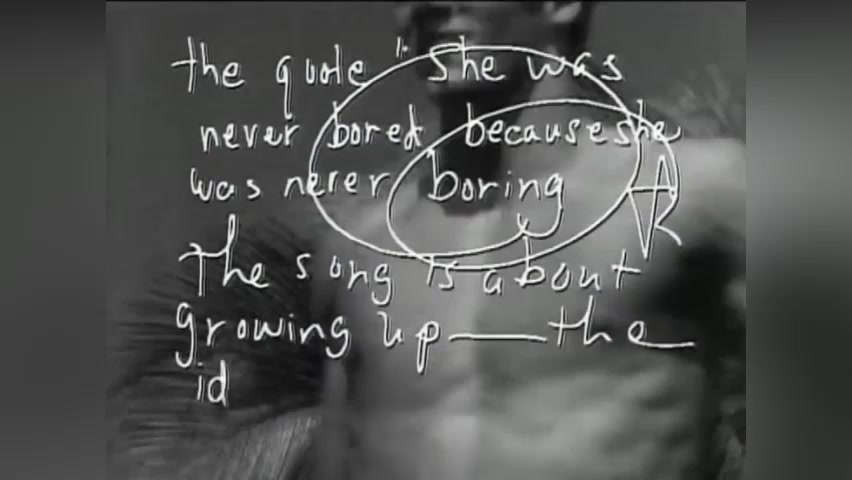 the quote "she was
never bored because she
was never boring
The song is about
growing up—the
id